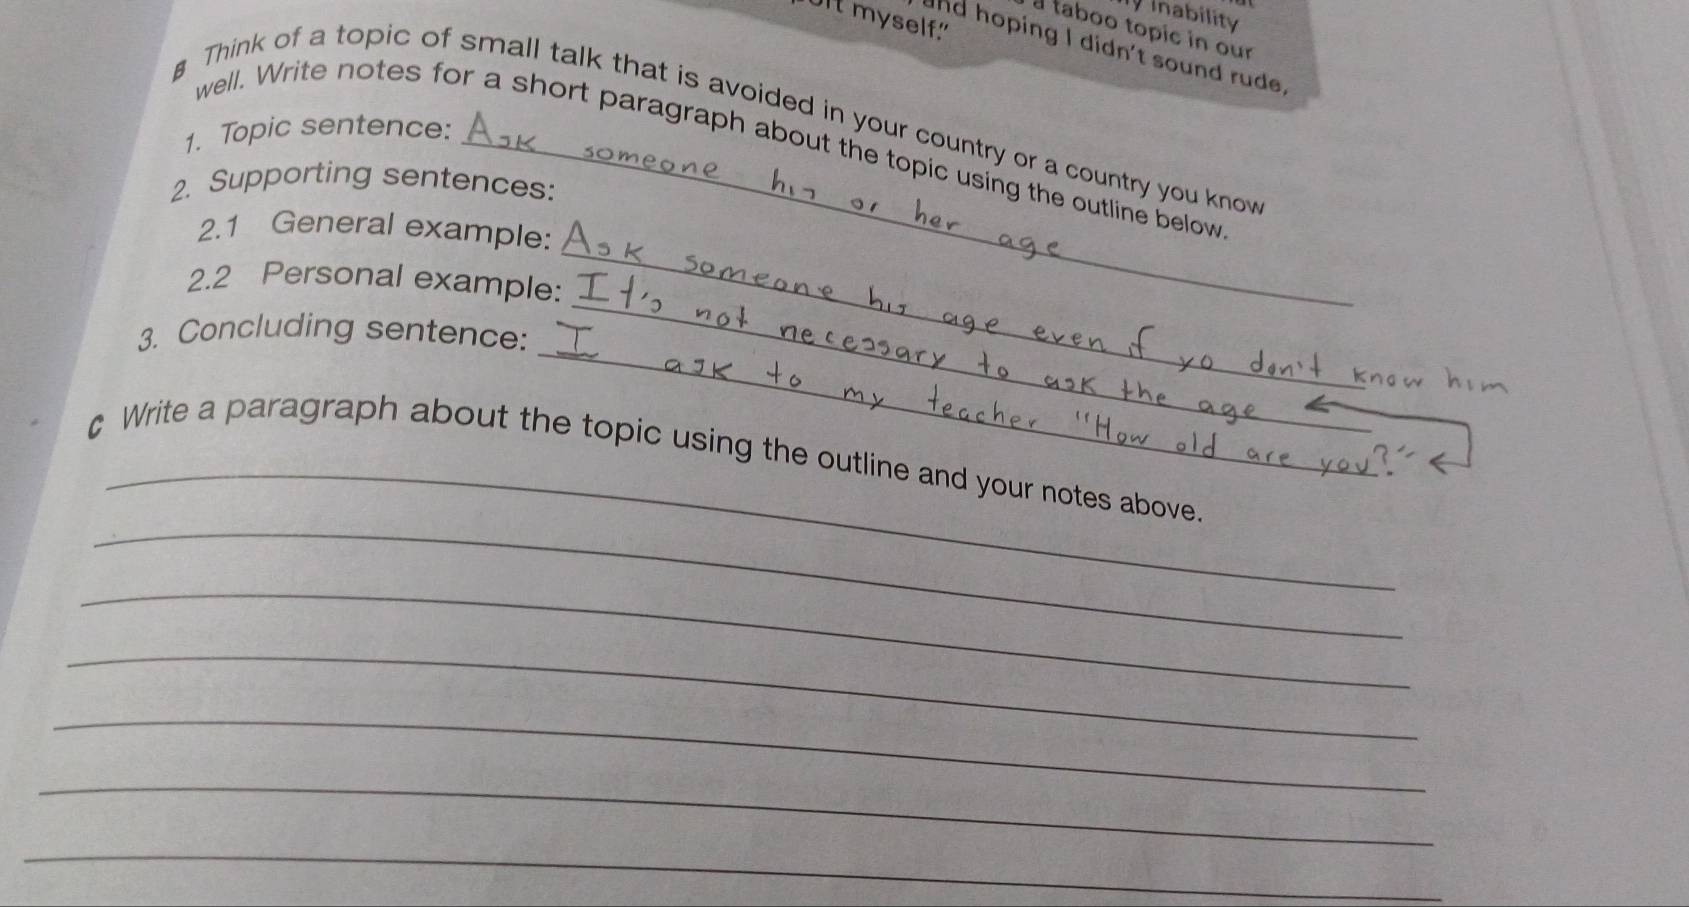 y inability
a taboo topic in our
and hoping I didn't sound rude,
myself."
B Think of a topic of small talk that is avoided in your country or a country you know
well. Write notes for a short paragraph about the topic using the outline below.
1. Topic sentence: Ask someone his or her age
2. Supporting sentences:
2.1 General example: Ask someone his age even if yo don't know him
2.2 Personal example: It's not necessary to ask the age
3. Concluding sentence: I ask to my teacher "How old are you?"
C Write a paragraph about the topic using the outline and your notes above.